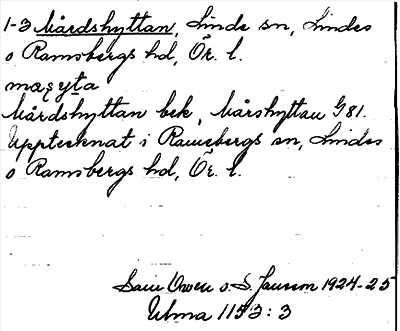 1-3 Mårdshyttan, Linde sn, Lindes
o Ramsbergs hd, Ör. l.
Mårdshyttan bek, Mårshyttan G 81.
Upptecknat i Ramsbergs sn, Lindes
o Ramsbergs hd, Ör. l.
Owen o S. Janson 1924-25
Ulma 1153:3